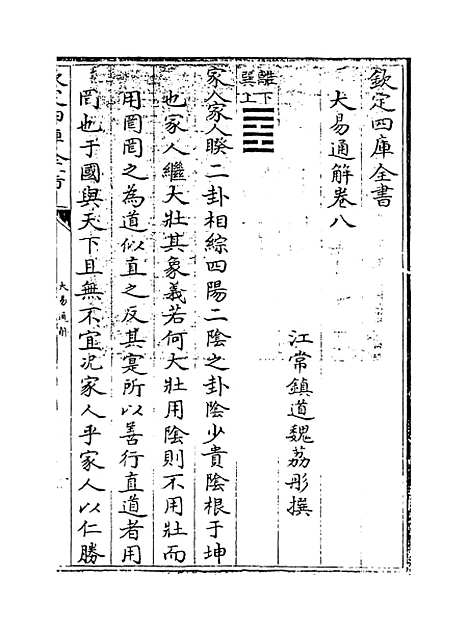 欽定四庫全書
大易通解卷八
江常鎮道魏荔彤撰
離下
巽上
家人家人睽二卦相綜四陽二陰之卦陰少貴陰根于坤
也家人繼大壯其象義若何大壯用陰則不用壯而
用罔罔之為道似直之反其寔所以善行直道者用
罔也于國與天下且無不宜况家人乎家人以仁勝
大易通解